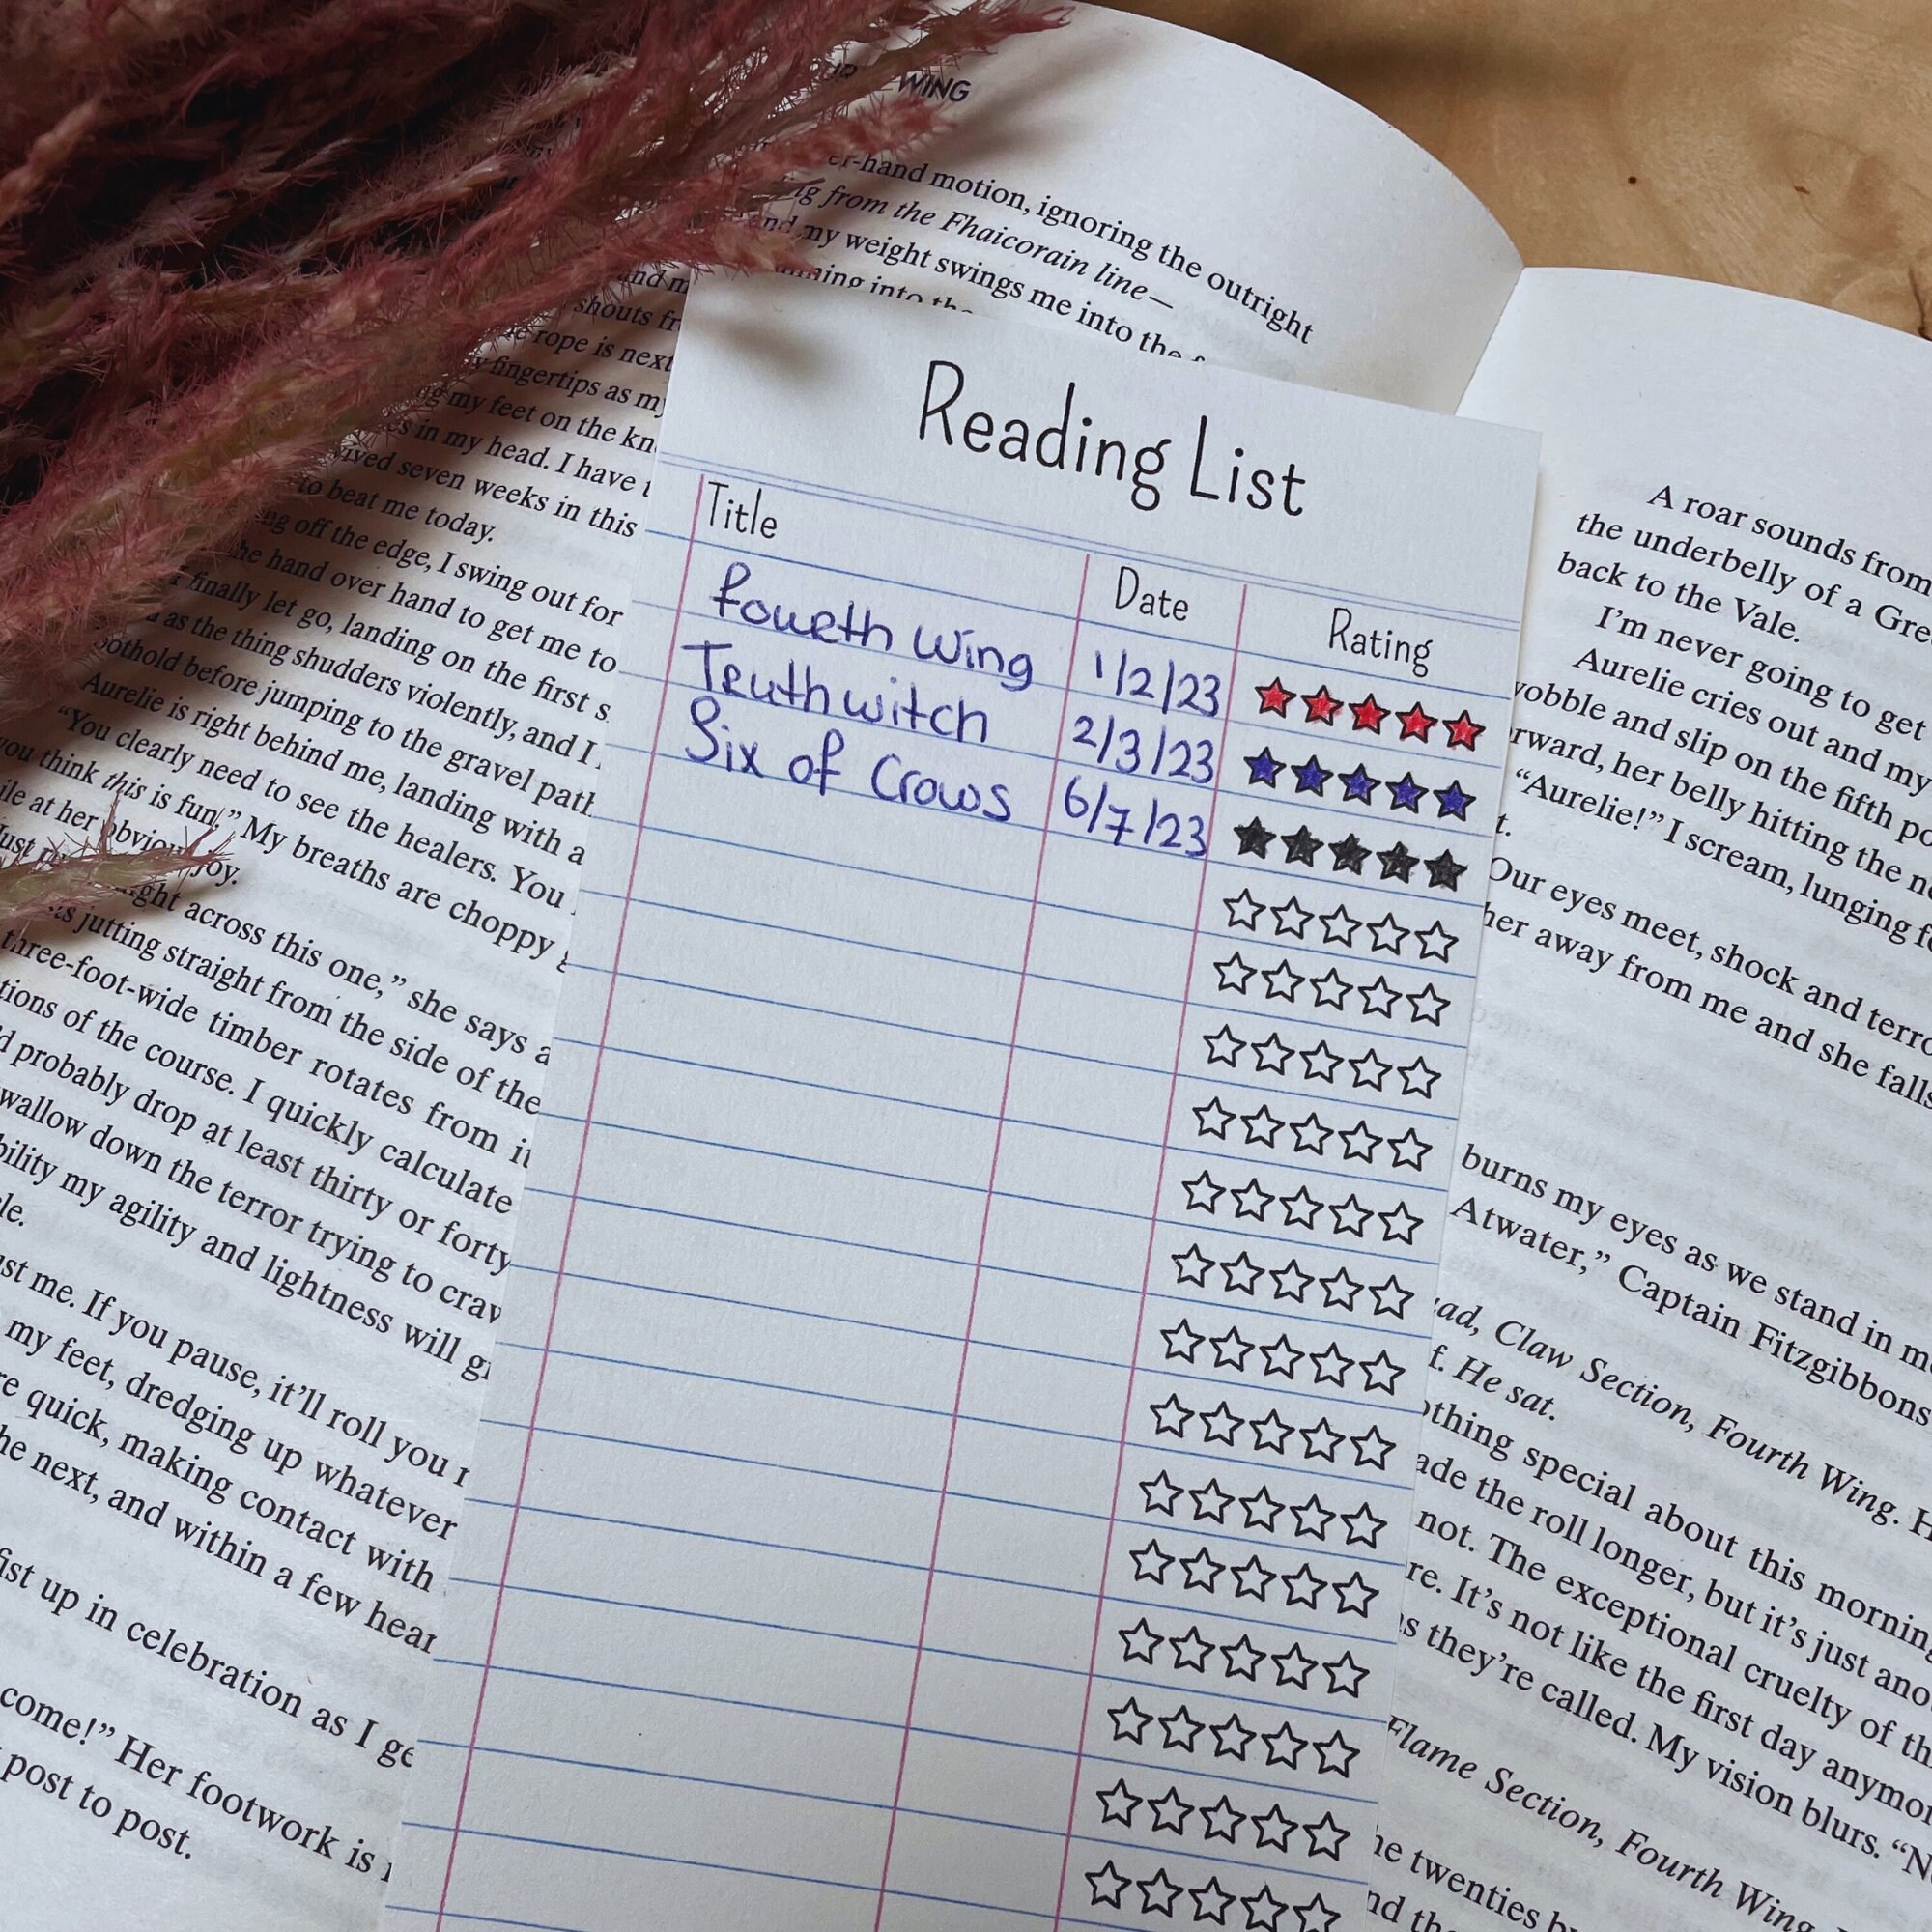 WING
er-hand motion, ignoring the outright
ing from the Fhaicorain line—
and my weight swings me into the
ning into
and
shouts
rope is next
fingertips as my
my feet on the
in my head. I have
seven weeks in this
to beat me today.
off the edge, I swing out for
hand over hand to get me to
finally let go, landing on the first
as the thing shudders violently, and I
before jumping to the gravel path
Aurelie is right behind me, landing with a
“You clearly need to see the healers. You
you think this is fun!” My breaths are choppy
at her obvious joy.
across this one,” she says
jutting straight from the side of the
three-foot-wide timber rotates from
of the course. I quickly calculate
probably drop at least thirty or forty
wallow down the terror trying to
my agility and lightness will
me. If you pause, it’ll roll you
my feet, dredging up whatever
quick, making contact with
next, and within a few
up in celebration as I
come!” Her footwork is
post to post.
Reading List
Title Date Rating
Fourth Wing 1/2/23
Truthwitch 2/3/23
Six of Crows 6/7/23
A roar sounds from
the underbelly of a
back to the Vale.
I’m never going to get
Aurelie cries out and my
wobble and slip on the fifth
her belly hitting the
“Aurelie!” I scream, lunging
Our eyes meet, shock and
her away from me and she falls
burns my eyes as we stand in
Atwater,” Captain Fitzgibbons
Claw Section, Fourth Wing.
He sat.
special about this morning
the roll longer, but it’s just
not. The exceptional cruelty of
It’s not like the first day
they’re called. My vision blurs.
Flame Section, Fourth Wing.
twenties